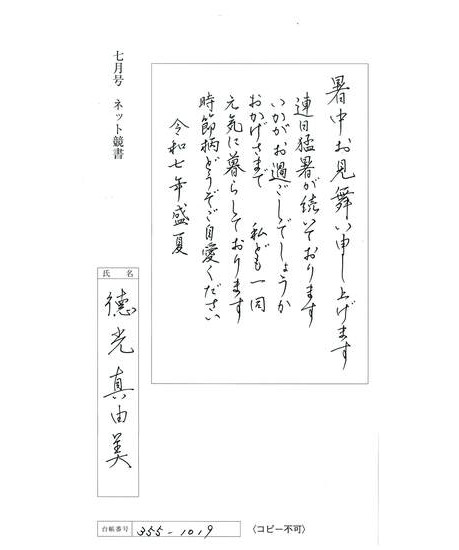 暑中お見舞い申し上げます
連日猛暑が続いております
いかがお過ごしでしょうか
おかげさまで 私ども一同
元気に暮らしております
時節柄どうぞご自愛ください
令和七年盛夏
七月号 ネット競書
氏名
德光真由美
台帳番号 355-1019
〈コピー不可〉